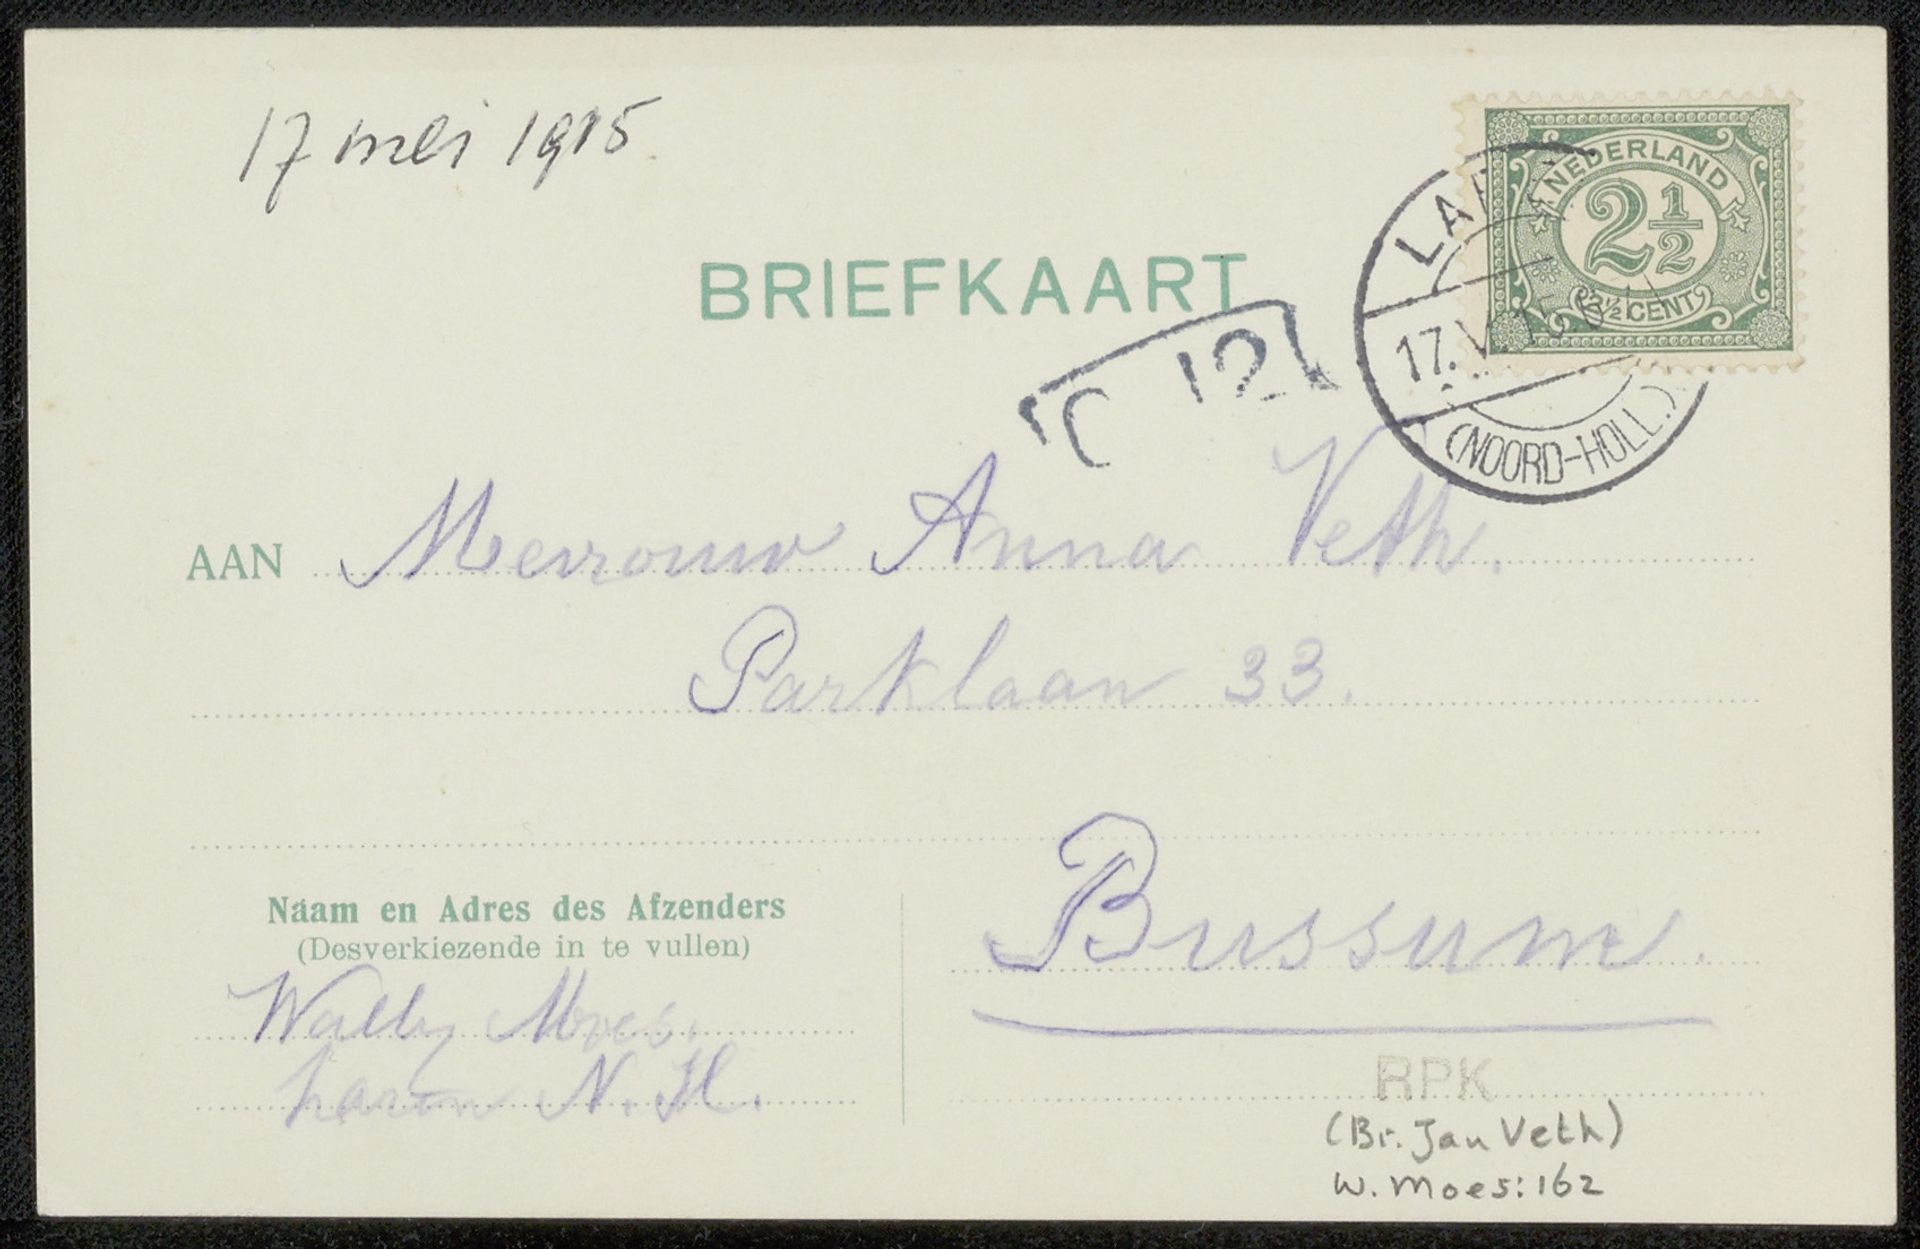 17 mei 1915
BRIEFKAART
NEDERLAND
2 1/2
2½ CENT
LA
17.V.15
(NOORD-HOLL.)
12
AAN Mevrouw Anna Veth.
Parklaan 33.
Bussum.
Naam en Adres des Afzenders
(Desverkiezende in te vullen)
Wally Moes.
Laren N.H.
RPK
(Br. Jan Veth)
W. Moes: 162